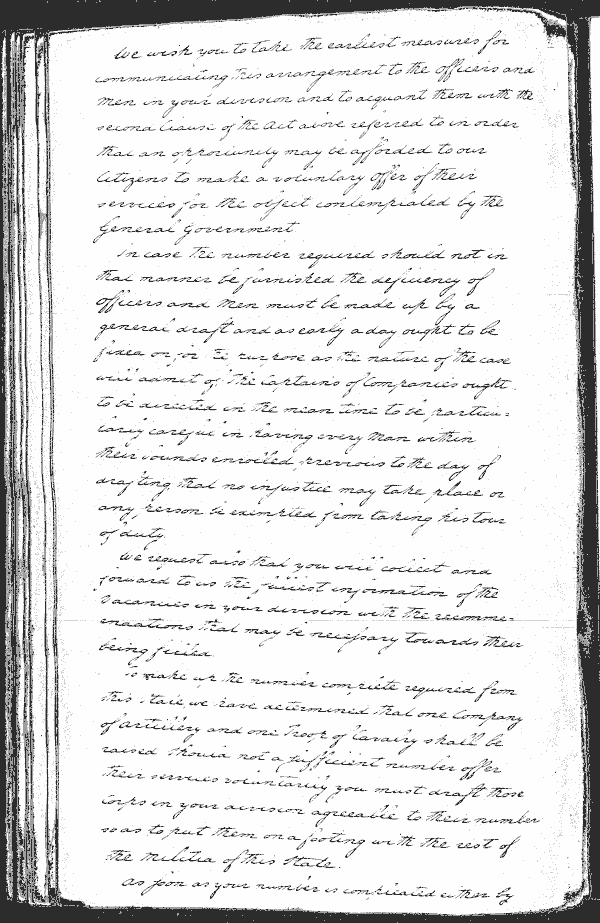 We wish you to take the earliest measures for
communicating this arrangement to the officers and
Men in your division and to acquant them with the
second Clause of the Act above referred to in order
that an opportunity may be afforded to our
Citizens to make a voluntary offer of their
services for the object contemplated by the
General Government
In case the number required should not in
that manner be furnished the deficiency of
officers and Men must be made up by a
general draft and as early a day ought to be
fixed on for the purpose as the nature of the case
will admit of. The Captains of Companies ought
to be directed in the mean time to be particu=
larly careful in having every Man within
their bounds enrolled previous to the day of
drafting that no injustice may take place or
any person be exempted from taking his tour
of duty.
We request also that you will collect and
forward to us the fullest information of the
Vacancies in your division with the recomme=
endations that may be necessary towards their
being filled.
To make up the number complete required from
this State, we have determined that one Company
of artillery and one Troop of Cavalry shall be
raised should not a sufficient number offer
their services voluntarily you must draft those
Corps in your division agreeable to their number
so as to put them on a footing with the rest of
the Militia of this State.
As soon as your number is complicated either by